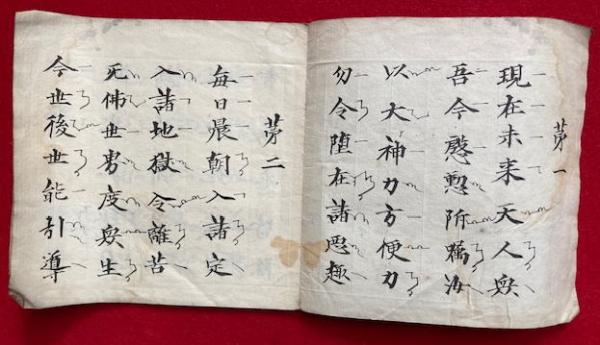 苐一
現在未来天人衆
吾今慇懃附嘱汝
以大神力方便力
勿令堕在諸悪趣
苐二
毎日晨朝入諸定
入諸地獄令離苦
无佛世界度衆生
今世後世能引導